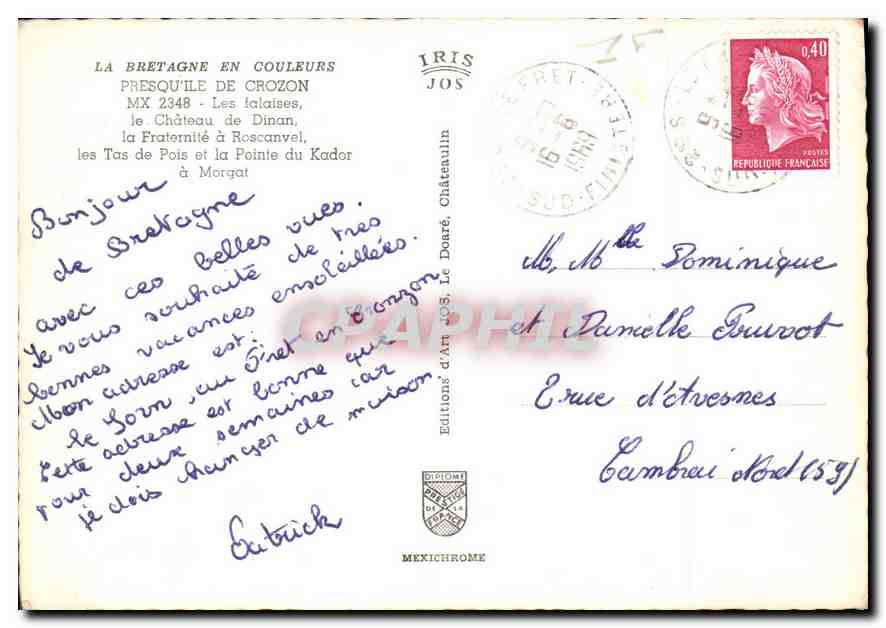 LA BRETAGNE EN COULEURS
PRESQU'ILE DE CROZON
MX 2348 - Les falaises,
le Château de Dinan,
la Fraternité à Roscanvel,
les Tas de Pois et la Pointe du Kador
à Morgat
IRIS
JOS
Bonjour
de Bretagne
avec ces belles vues.
Je vous souhaite de tres
bonnes vacances ensoleillées.
Mon adresse est:
le Lorn au Fret en Cronzon
Cette adresse est bonne que
pour deux semaines car
je dois changer de maison.
Patrick
Editions d'Art JOS, Le Doaré, Châteaulin
DIPLOME
PRESTIGE
DE LA
FRANCE
MEXICHROME
CPAPHIL
15
LE FRET-
16-8
1969
SUD-FINISTERE
0,40
POSTES
REPUBLIQUE FRANÇAISE
M, Mlle Dominique
et Danielle Pruvot
2 rue d'Avesnes
Cambrai Nord (59)